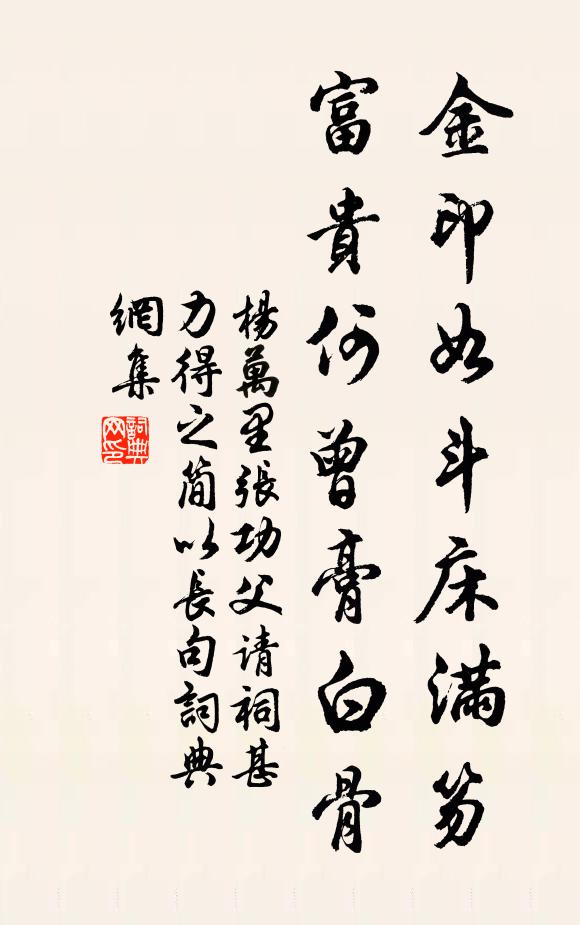 金印如斗床满笏
富貴何曾膏白骨
楊萬里張功父请祠甚
力得之简以長句詞典
網集
詞典网印